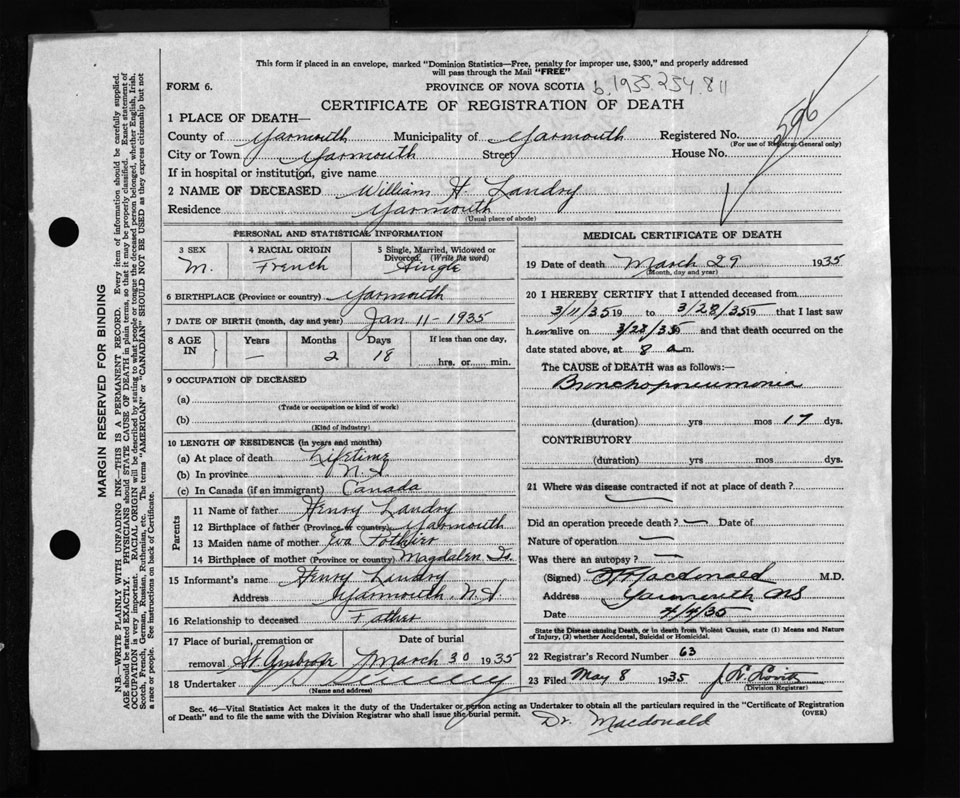 This form if placed in an envelope, marked "Dominion Statistics—Free, penalty for improper use, $300," and properly addressed
will pass through the Mail "FREE"
FORM 6. PROVINCE OF NOVA SCOTIA b.1935.254.811
CERTIFICATE OF REGISTRATION OF DEATH
596
1 PLACE OF DEATH—
County of Yarmouth Municipality of Yarmouth Registered No.
(For use of Registrar-General only)
City or Town Yarmouth Street House No.
If in hospital or institution, give name
2 NAME OF DECEASED William H. Landry
Residence Yarmouth
(Usual place of abode)
PERSONAL AND STATISTICAL INFORMATION
3 SEX 4 RACIAL ORIGIN 5 Single, Married, Widowed or Divorced (Write the word)
M. French Single
6 BIRTHPLACE (Province or country) Yarmouth
7 DATE OF BIRTH (month, day and year) Jan 11 - 1935
8 AGE IN Years Months Days If less than one day,
— 2 18 hrs. or min.
9 OCCUPATION OF DECEASED
(a)
(Trade or occupation or kind of work)
(b)
(Kind of industry)
10 LENGTH OF RESIDENCE (in years and months)
(a) At place of death Lifetime
(b) In province N.S
(c) In Canada (if an immigrant) Canada
Parents
11 Name of father Henry Landry
12 Birthplace of father (Province or country) Yarmouth
13 Maiden name of mother Eva Pothier
14 Birthplace of mother (Province or country) Magdalen Is.
15 Informant's name Henry Landry
Address Yarmouth, N.S
16 Relationship to deceased Father
17 Place of burial, cremation or removal St. Ambrose Date of burial March 30 1935
18 Undertaker
(Name and address)
MEDICAL CERTIFICATE OF DEATH
19 Date of death March 29 1935
(Month, day and year)
20 I HEREBY CERTIFY that I attended deceased from
3/11/35 19 to 3/28/35 19 that I last saw
h im alive on 3/28/35 and that death occurred on
date stated above, at 8 a.m.
The CAUSE of DEATH was as follows:—
Bronchopneumonia
(duration) yrs mos 17 dys.
CONTRIBUTORY
(duration) yrs mos dys.
21 Where was disease contracted if not at place of death?
Did an operation precede death? — Date of
Nature of operation —
Was there an autopsy? —
(Signed) Macdonald M.D.
Address Yarmouth NS
Date 4/4/35
State the Disease causing Death, or in death from Violent Causes, state (1) Means and Nature
of Injury, (2) whether Accidental, Suicidal or Homicidal.
22 Registrar's Record Number 63
23 Filed May 8 1935
(Division Registrar)
Sec. 46—Vital Statistics Act makes it the duty of the Undertaker or person acting as Undertaker to obtain all the particulars required in the "Certificate of Registration
of Death" and to file the same with the Division Registrar who shall issue the burial permit. (OVER)
Dr. Macdonald
MARGIN RESERVED FOR BINDING
N.B.—WRITE PLAINLY WITH UNFADING INK—THIS IS A PERMANENT RECORD. Every item of information should be carefully supplied.
AGE should be stated EXACTLY. PHYSICIANS should STATE CAUSE OF DEATH in plain terms, so that it may be properly classified. Exact statement of
OCCUPATION is very important. RACIAL ORIGIN will be described by stating to what people or tongue the deceased person belonged, whether English, Irish,
Scotch, French, German, Russian, Ruthenian, etc. The terms "AMERICAN" or "CANADIAN" SHOULD NOT BE USED as they express citizenship but not
a race or people. See instructions on back of Certificate.